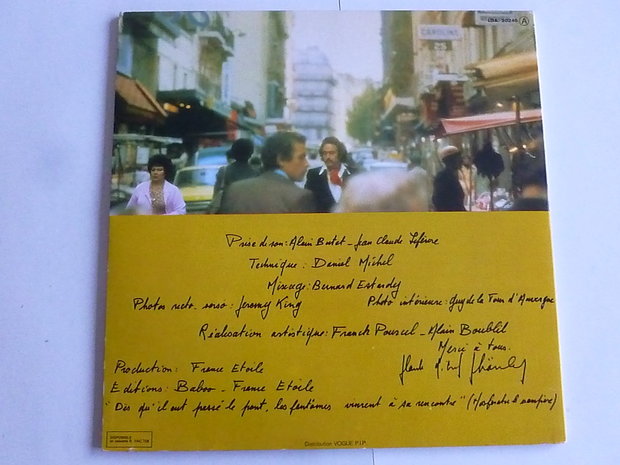 LDA. 20240 A
CAROLINE
25
Prise de son: Alain Butet - Jean Claude Lefèvre
Technique: Daniel Michel
Mixage: Bernard Estardy
Photos recto. verso: Jeremy King Photo intérieure: Guy de la Tour d'Auvergne
Réalisation artistique: Franck Pourcel - Alain Boublil
Merci à tous.
Production: France Etoile
Editions: Baboo - France Etoile
"Dès qu'il eut passé le pont, les fantômes vinrent à sa rencontre" (Nosferatu le vampire)
DISPONIBLE
Distribution VOGUE P.I.P.